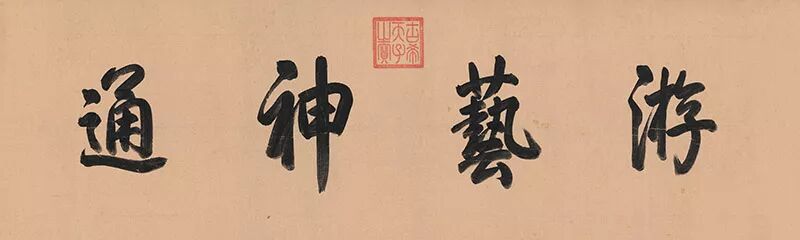 游藝神通
古希天子之寶